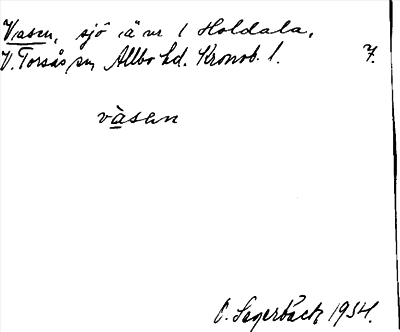 Vasen, sjö i ä nr 1 Holdala.
V. Torsås sn Allbo hd. Kronob. l. 7.
vàsen
O. Segerbäck 1934.